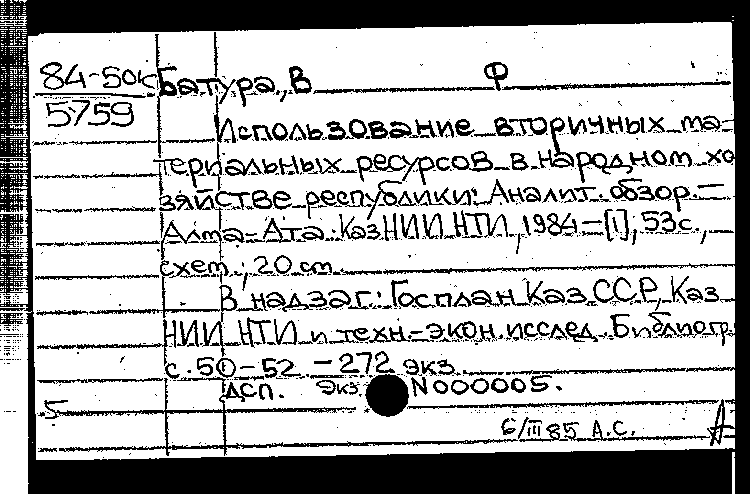 84-50к Батура, В Ф
5759
Использование вторичных ма-
териальных ресурсов в народном хо
зяйстве республики: Аналит. обзор.—
Алма-Ата: КазНИИ НТИ, 1984—[1], 53с.,
схем.; 20 cm.
В надзаг.: Госплан Каз.ССР, Каз
НИИ НТИ и техн-экон. исслед. Библиогр
с. 50-52 —272 экз.
ДСП. Экз N000005.
5
6/III 85 А.С.